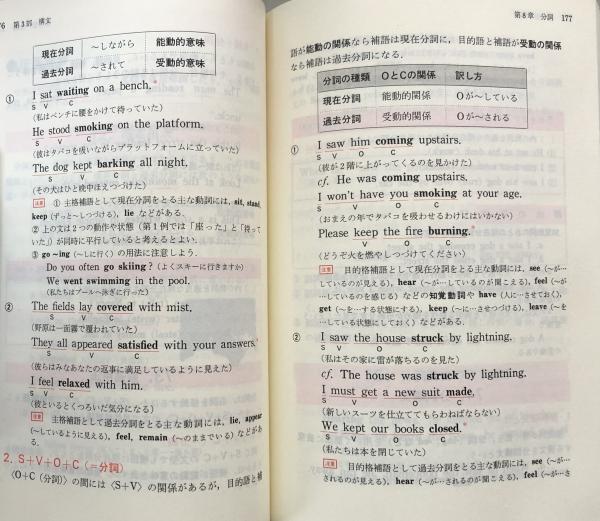 76 第3部 構文
現在分詞 ～しながら 能動的意味
過去分詞 ～されて 受動的意味
① I sat waiting on a bench.
S V C
(私はベンチに腰をかけて待っていた)
He stood smoking on the platform.
S V C
(彼はタバコを吸いながらプラットフォームに立っていた)
The dog kept barking all night.
S V C
(その犬はひと晩中ほえつづけた)
注意 ① 主格補語として現在分詞をとる主な動詞には, sit, stand,
keep (ずっと～しつづける), lie などがある.
② 上の文は2つの動作や状態 (第1例では「座った」と「待って
いた」) が同時に平行していると考えるとよい.
③ go ~ing (～しに行く) の用法に注意しよう.
Do you often go skiing? (よくスキーに行きますか)
We went swimming in the pool.
(私たちはプールへ泳ぎに行った)
② The fields lay covered with mist.
S V C
(野原は一面霧で覆われていた)
They all appeared satisfied with your answers.
S V C
(彼らはみなあなたの返事に満足しているように見えた)
I feel relaxed with him.
S V C
(彼といるとくつろいだ気分になる)
注意 主格補語として過去分詞をとる主な動詞には, lie, appear
(～しているように見える), feel, remain (～のままでいる) などがあ
る.
2. S+V+O+C (=分詞)
〈O+C (分詞)〉の間には〈S+V〉の関係があるが, 目的語と補
第8章 分詞 177
語が能動の関係なら補語は現在分詞に, 目的語と補語が受動の関係
なら補語は過去分詞になる.
分詞の種類 OとCの関係 訳し方
現在分詞 能動的関係 Oが～している
過去分詞 受動的関係 Oが～される
① I saw him coming upstairs.
S V O C
(彼が2階に上がってくるのを見かけた)
cf. He was coming upstairs.
I won't have you smoking at your age.
S V O C
(おまえの年でタバコを吸わせるわけにはいかない)
Please keep the fire burning.
V O C
(どうぞ火を燃やしつづけてください)
注意 目的格補語として現在分詞をとる主な動詞には, see (～が…
しているのが見える), hear (～が…しているのが聞こえる), feel (～が
…しているのを感じる) などの知覚動詞や have (人に…させておく),
get (～を…する状態にする), keep (～に…させつづける), leave (～を
…している状態にしておく) などがある.
② I saw the house struck by lightning.
S V O C
(私はその家に雷が落ちるのを見た)
cf. The house was struck by lightning.
I must get a new suit made.
S V O C
(新しいスーツを仕立ててもらわねばならない)
We kept our books closed.
S V O C
(私たちは本を閉じていた)
注意 目的格補語として過去分詞をとる主な動詞には, see (～が…
されるのが見える), hear (～が…されるのが聞こえる), feel (～が…さ